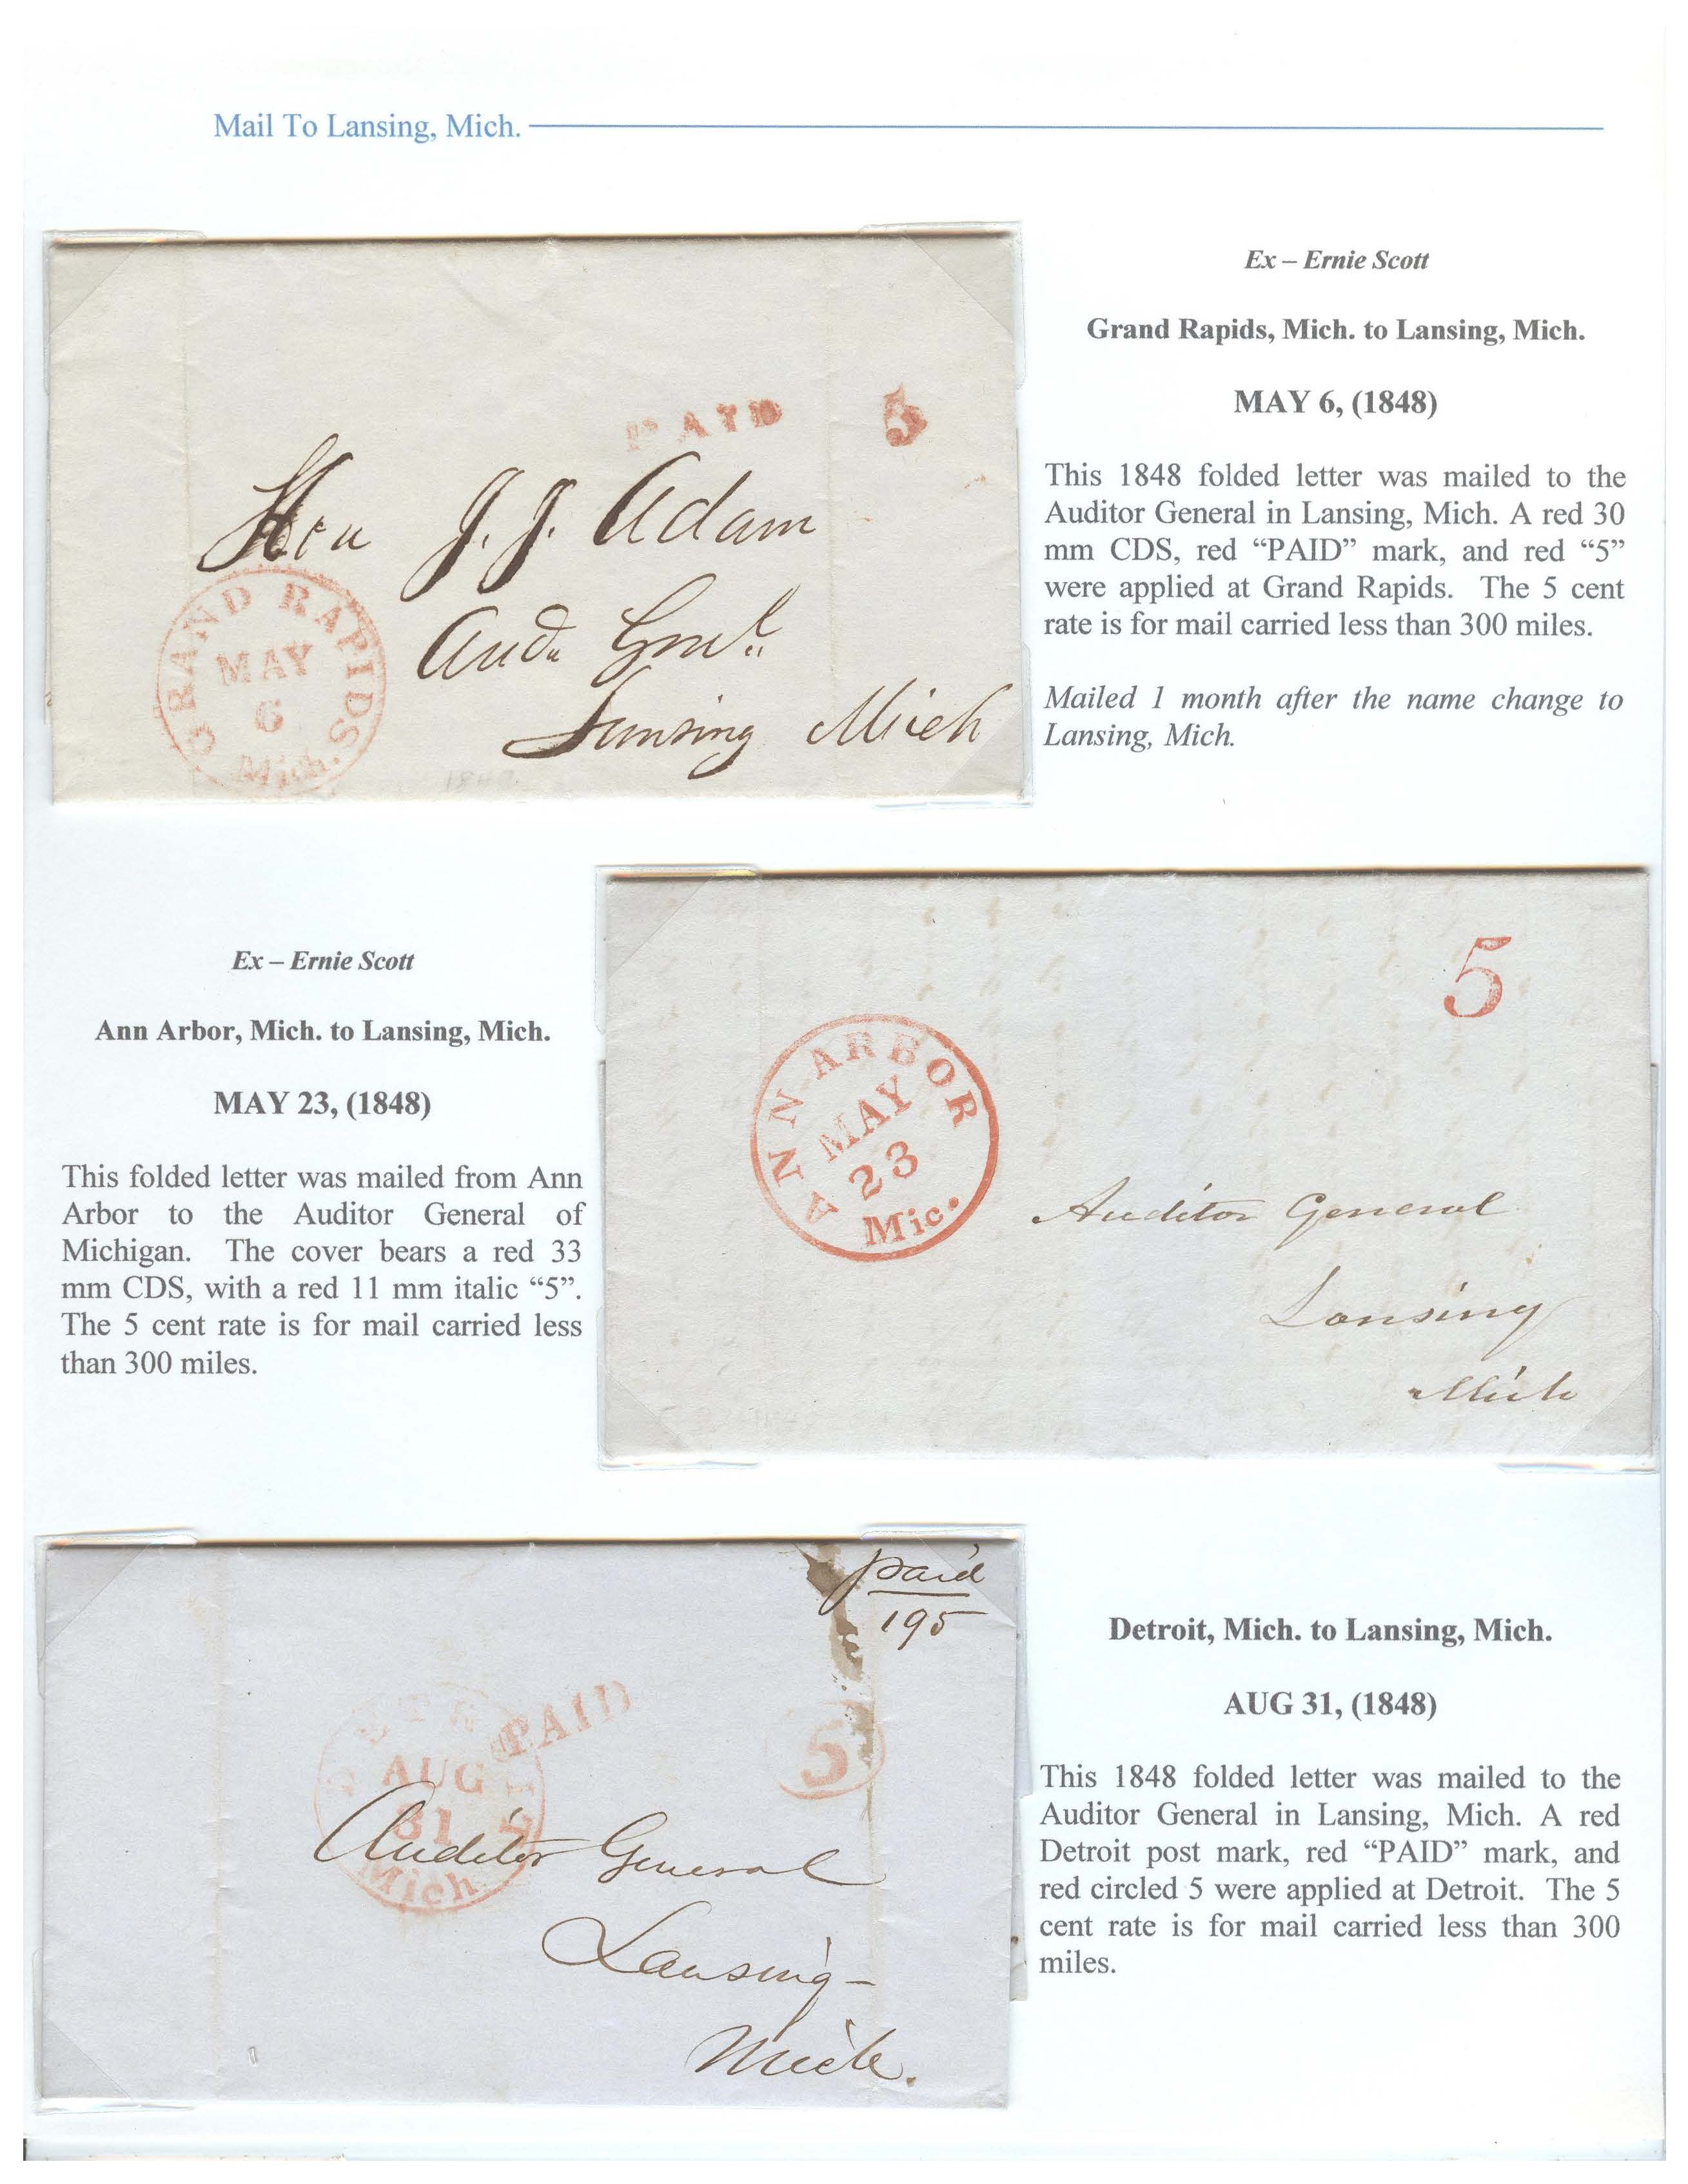 Mail To Lansing, Mich.
PAID
5
Hon J. J. Adam
Aud. Genl.
Lansing Mich
GRAND RAPIDS
MAY
6
Mich.
Ex – Ernie Scott
Grand Rapids, Mich. to Lansing, Mich.
MAY 6, (1848)
This 1848 folded letter was mailed to the
Auditor General in Lansing, Mich. A red 30
mm CDS, red “PAID” mark, and red “5”
were applied at Grand Rapids. The 5 cent
rate is for mail carried less than 300 miles.
Mailed 1 month after the name change to
Lansing, Mich.
Ex – Ernie Scott
Ann Arbor, Mich. to Lansing, Mich.
MAY 23, (1848)
This folded letter was mailed from Ann
Arbor to the Auditor General of
Michigan. The cover bears a red 33
mm CDS, with a red 11 mm italic “5”.
The 5 cent rate is for mail carried less
than 300 miles.
5
ANN ARBOR
MAY
23
Mic.
Auditor General
Lansing
Mich
paid
195
PAID
5
DETROIT
AUG
31
Mich
Auditor General
Lansing –
Mich.
Detroit, Mich. to Lansing, Mich.
AUG 31, (1848)
This 1848 folded letter was mailed to the
Auditor General in Lansing, Mich. A red
Detroit post mark, red “PAID” mark, and
red circled 5 were applied at Detroit. The 5
cent rate is for mail carried less than 300
miles.